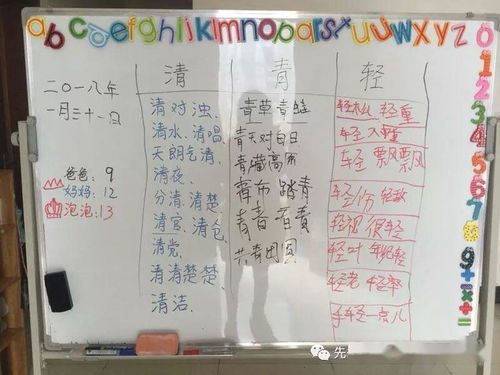 abcdefghijklmnopqrstuvwxyz
0
1
2
3
4
5
6
7
8
9
二〇一八年
一月三十一日
爸爸:9
妈妈:12
泡泡:13
清
清对浊、
清水、清唱、
天朗气清、
清夜、
分清、清楚、
清官、清仓、
清党、
清清楚楚、
清洁、
青
青草青蛙
青天对白日
青藏高
青布踏青
青
共青团
轻
轻松 轻重
轻
轻 飘飘
轻伤 轻敌
轻视 很轻
轻 年纪轻
轻 轻率
手轻一点儿
先